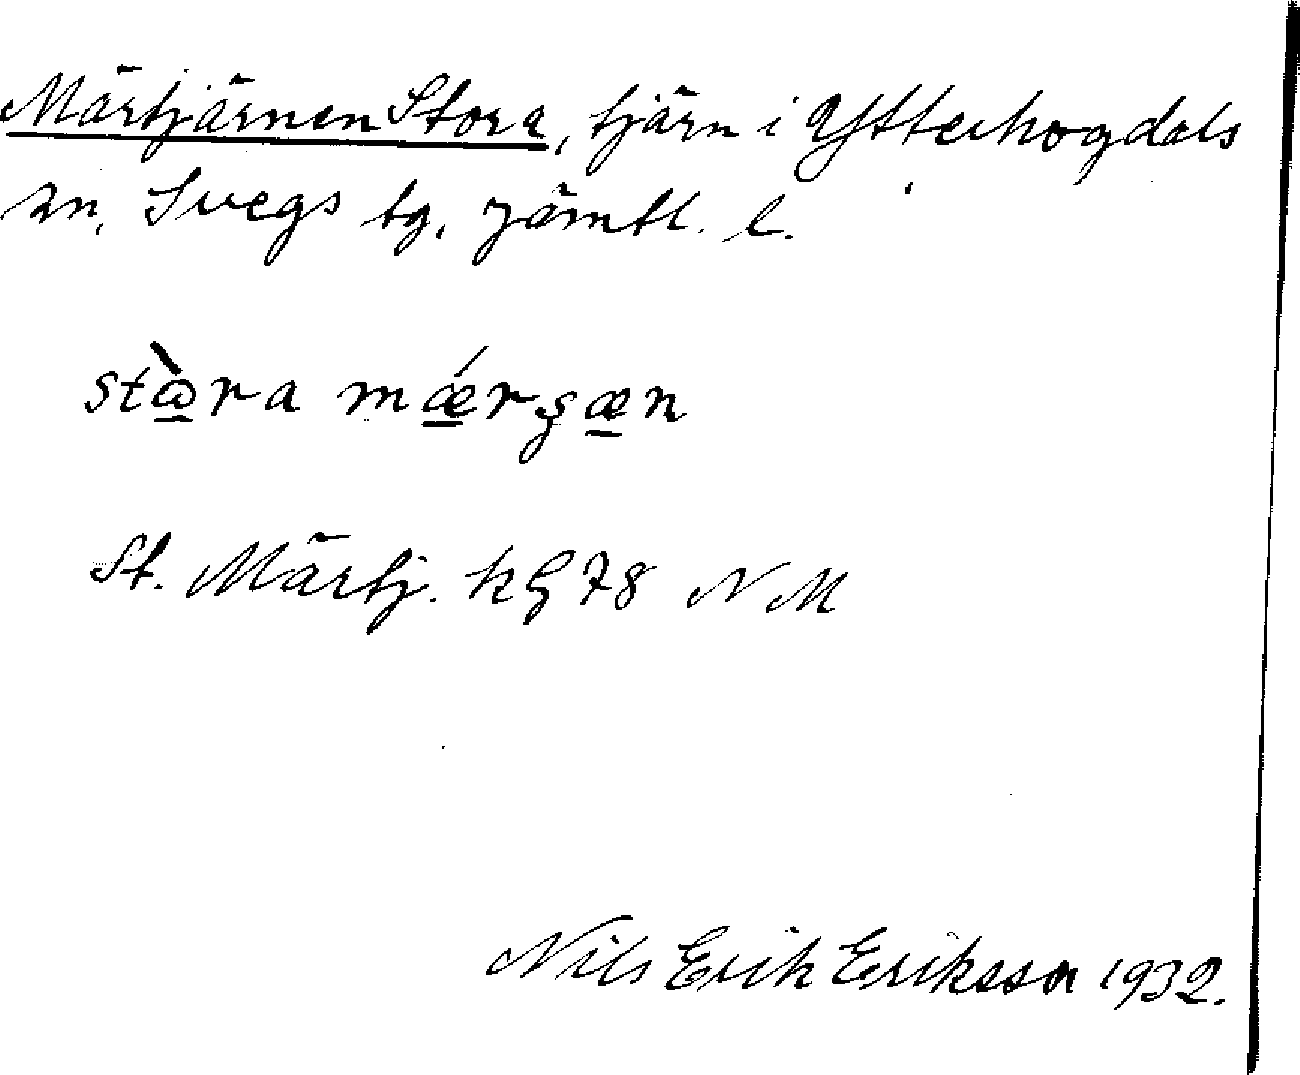 Märtjärnen Stora, tjärn i Ytterhogdals
sn, Svegs tg, Jämtl. l.
stɷ̀ra mǽrʂæn
St. Märtj. kg 78 NM
Nils Erik Eriksson 1932.